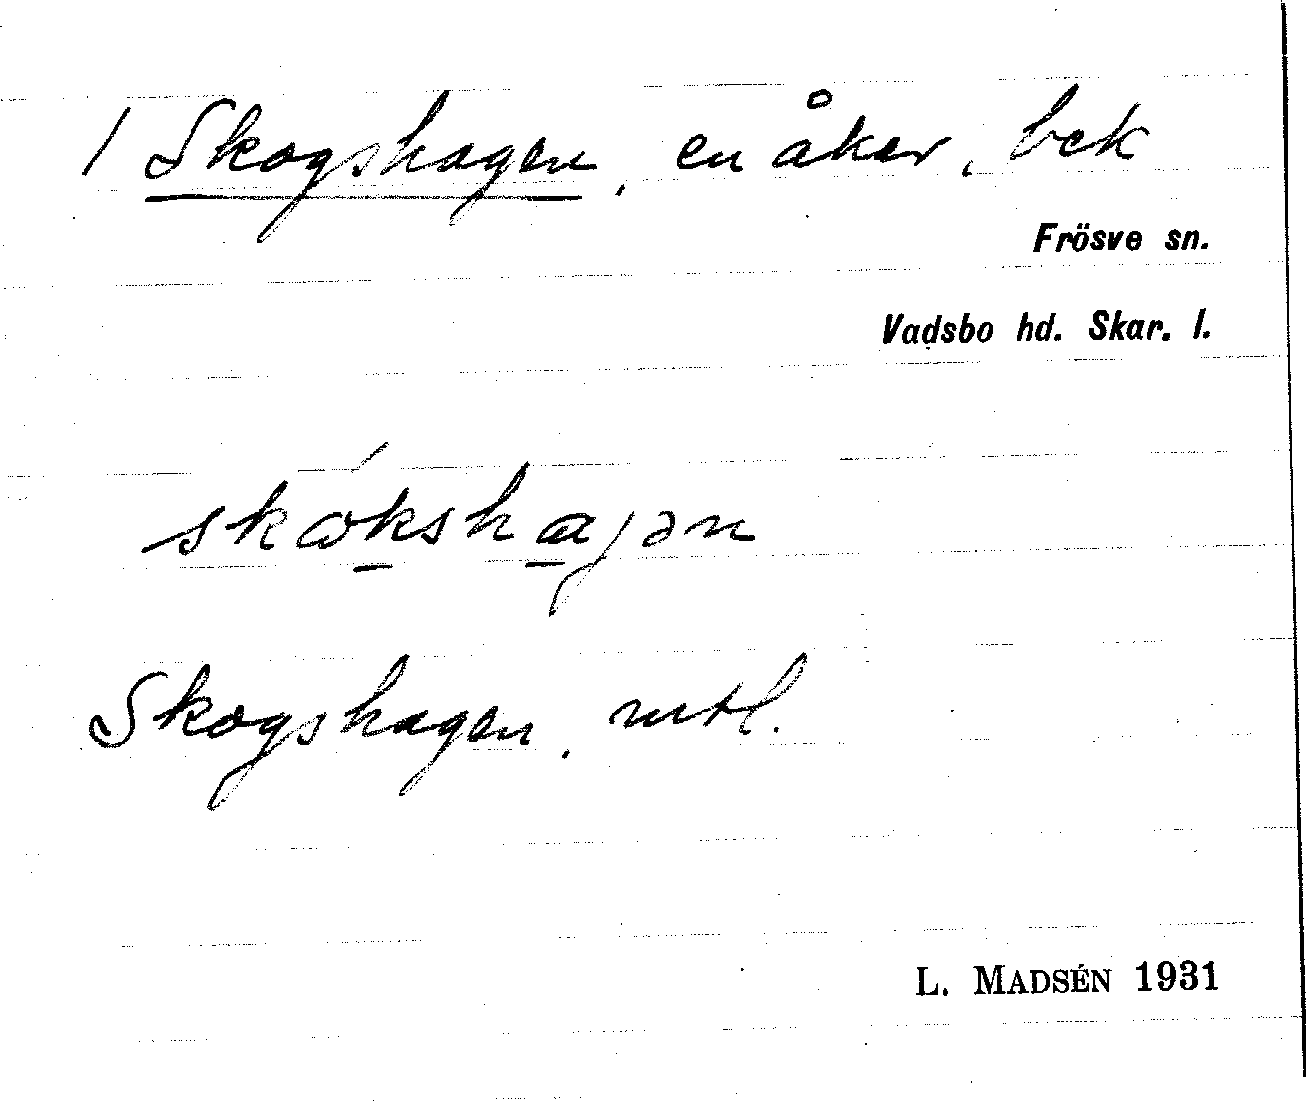 1 Skogshagen, en åker, bek
Frösve sn.
Vadsbo hd. Skar. l.
Skogshagen, mtl.
L. MADSÉN 1931